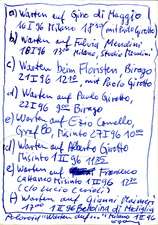 a) Warten auf Giro di Maggio
16 I 96 Milano 18⁰⁰ (mit Paolo Girotto)
b) Warten auf Fulvia Mendini
18 I 96 13⁰⁰ Milano, Studio Mendini
c) Warten beim Floristen, Birago
21 I 96 12⁰⁰ mit Paolo Girotto
d) Warten auf Paolo Girotto,
22 I 96 9⁰⁰ Birago
e) Warten auf Ezio Cunello,
Graf 80, Misinto 27 I 96 10⁰⁰
d) Warten auf Alberto Girotto
Misinto 1 II 96 11⁰⁵
e) Warten auf Francesco
Cattaneo Misinto 1 II 96 12⁰⁰
(c/o Lucio Corini)
f) Warten auf Gianni Ranieri
13 II 96 Bertolina di Mediglia
"Warten auf..." Milano II 96